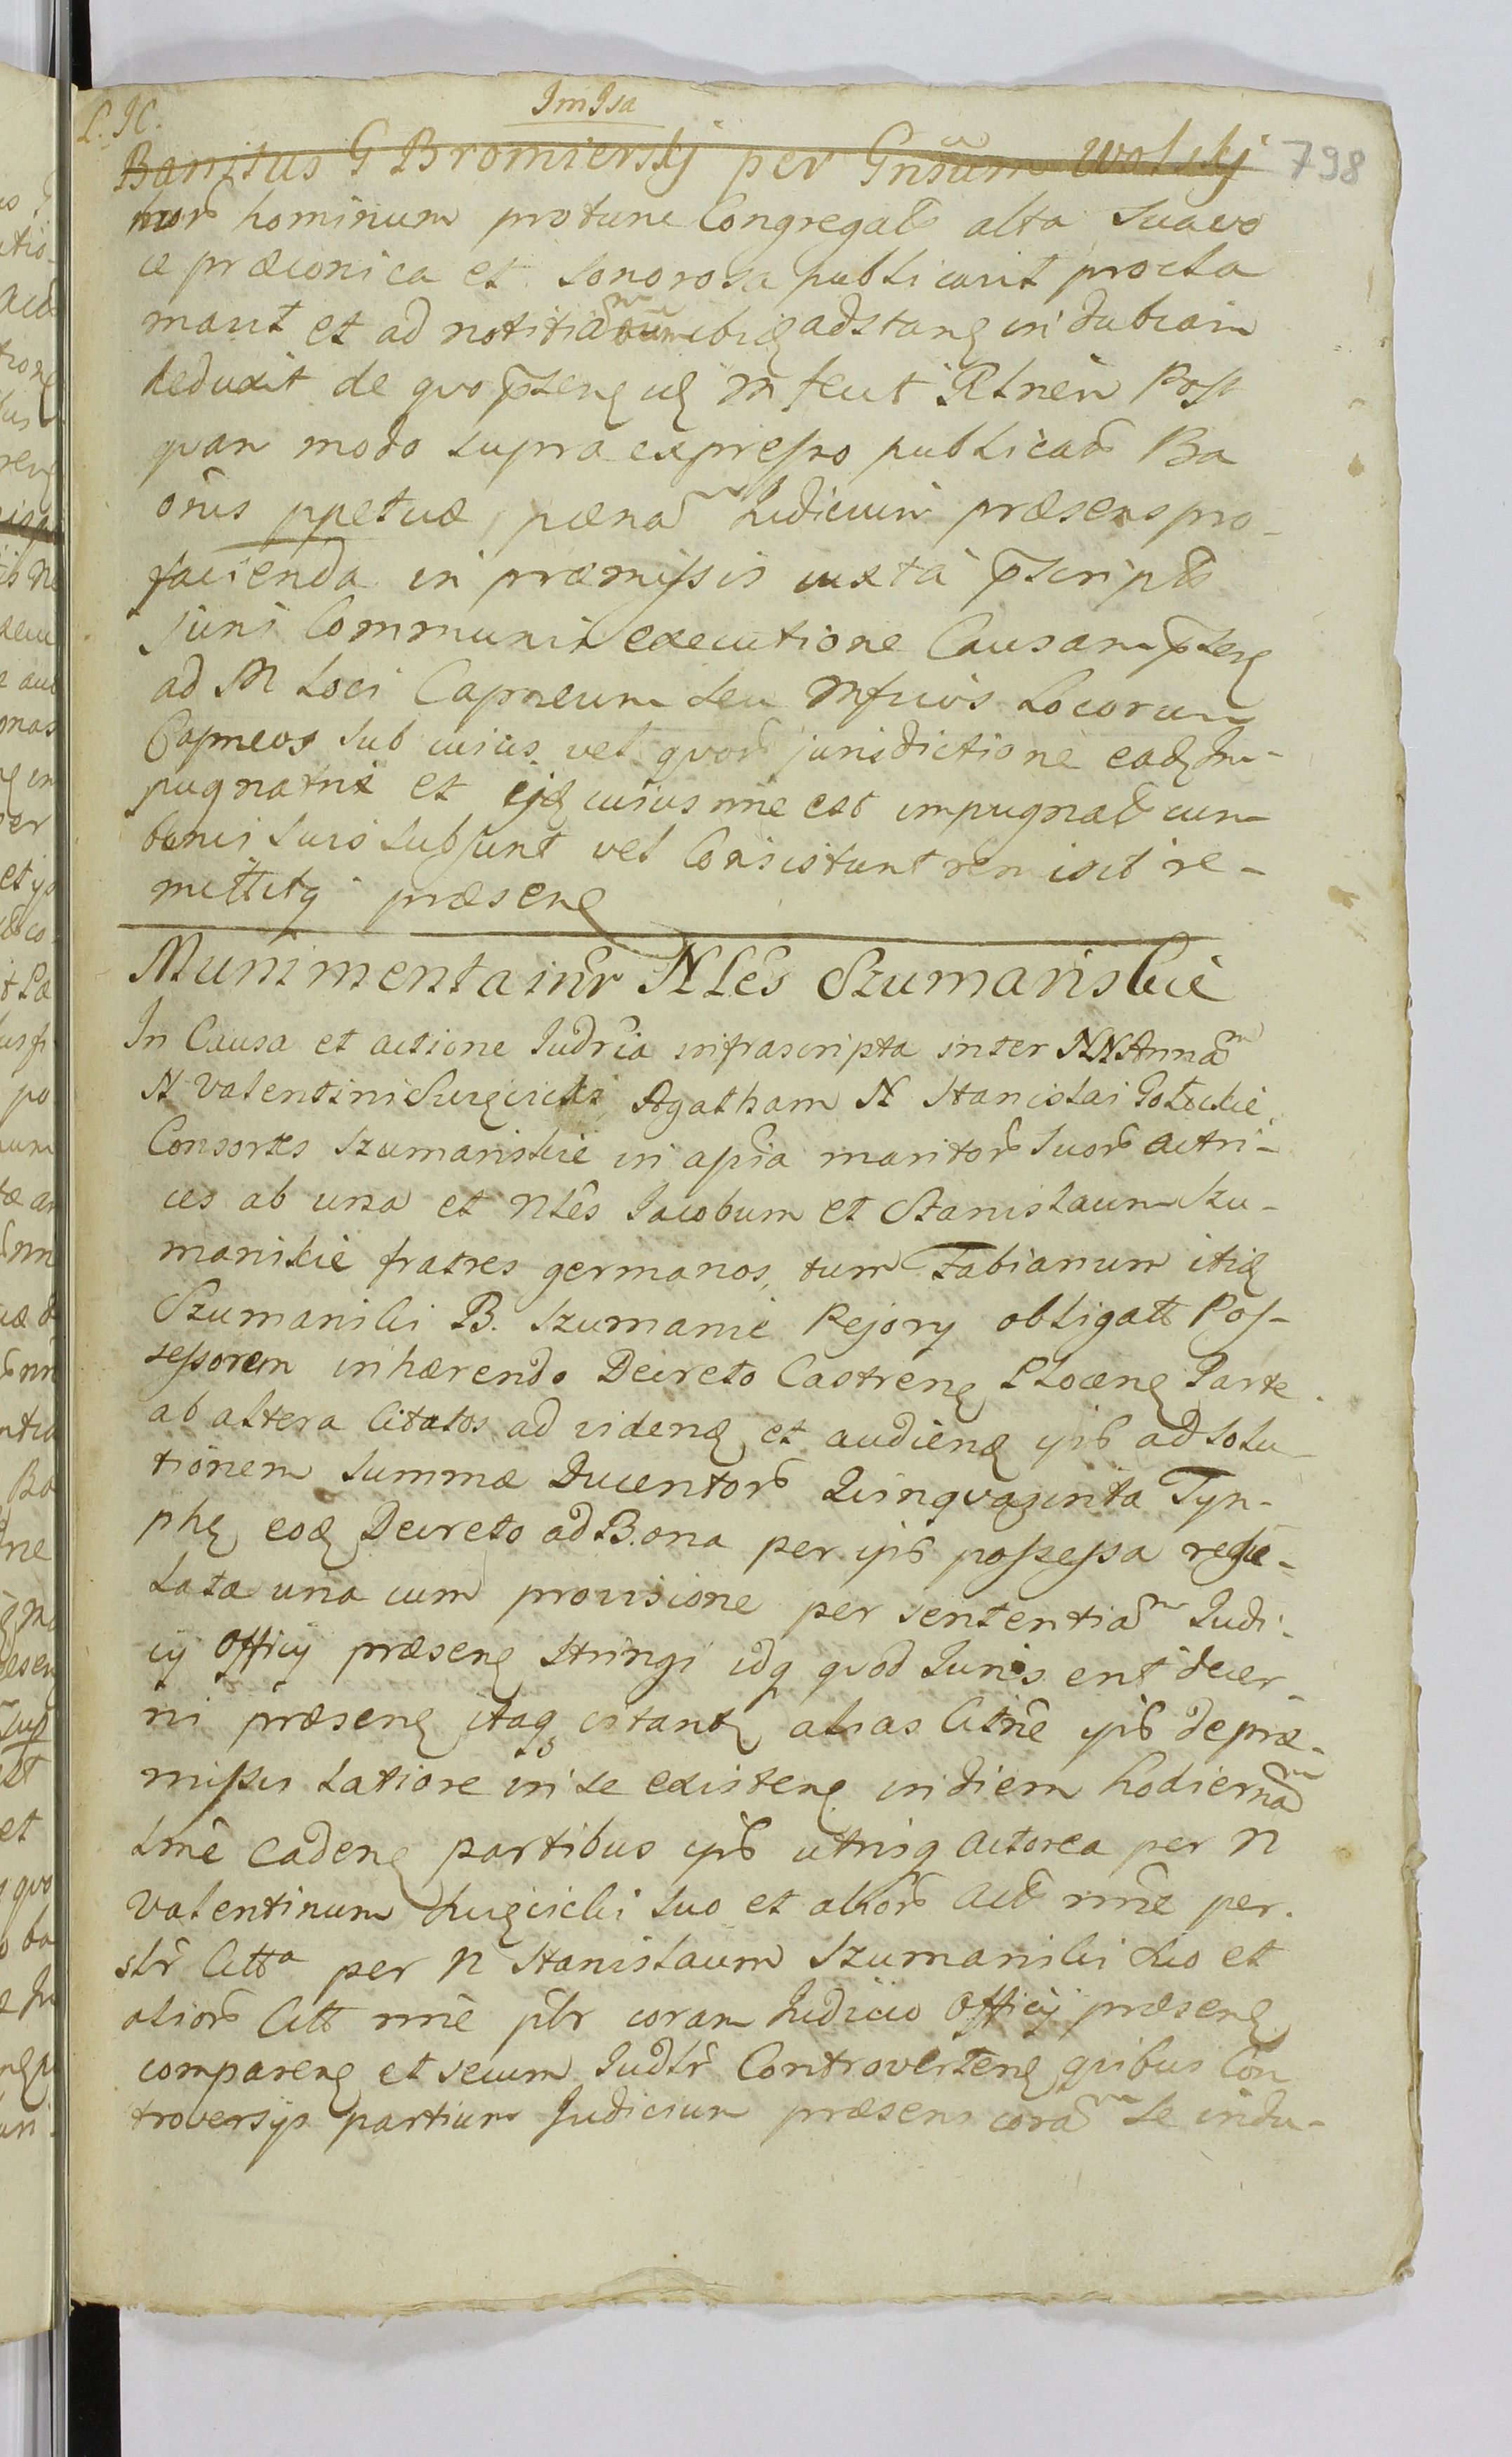 ImIsa
L. JC.
Banitus G Bromierskj per Gnsum Wolskj 798
hor̃ hominum protunc Congregat̃ alta Suavo
ce præconica et Sonorosa publicavit procla
mavit et ad notitiam ibiq̃ adstanq̃ indubiam
deduxit de quo p̃senq̃ M fecit Rlnem Post
quam modo Supra expresso publicat̃ Ba
onis ppetuæ pænam Judicium præsens pro-
facienda in præmissis iuxta p̃script̃
Juris Communis executione Causam p̃senq̃
ad M Loci Capneum Seu Mficos Locorum
Capneos Sub cuius vel quor̃ jurisdictione eadq̃ Im-
pugnatrix et ejq̃ cuius nne est impugnat̃ cum
bonis Suis Subsunt vel Consistunt remisit re-
mittitq præsenq̃
Munimenta intr Nles Szumanskie
In Causa et actione Judria infrascripta inter NN Annam
N Valentini Agatham N Stanislai Gołockie
Consortes Szumanskie in aptia maritor̃ Suor̃ Actri-
ces ab una et Nles Jacobum et Stanislaum Szu-
manskie fratres germanos, tum Fabianum itiq̃
Szumanski B. Szumanie Pejory obligatt Pos-
sessorem inhærendo Decreto Castrenq̃ Plocenq̃ Parte
ab altera Citatos ad videnq̃ et audienq̃ ips̃ ad Solu-
tionem Summæ Ducentor̃ Quinquaginta Tyn-
phq̃ eoq̃ Decreto ad Bona per ips̃ possessa regu-
lata una cum provisione per sententiam Judi-
cij Officij præsenq̃ Stringi idq quod Juris erit decer-
ni præsenq̃ itaq citantq̃ alias Citne ips̃ de præ-
missis latiore in se existenq̃ in diem hodiernam
Lme cadenq̃ partibus ips̃ utrisq Actorea per N
Valentinum suo et alior̃ Act̃ nne per-
slr Citta per N Stanislaum Szumanski Suo et
alior̃ Citt nne pslr coram Judicio Officij præsenq̃
comparenq̃ et secum Judlr Controvertenq̃ quibus Con
troversijs partium Judicium præsens coram Se indu-